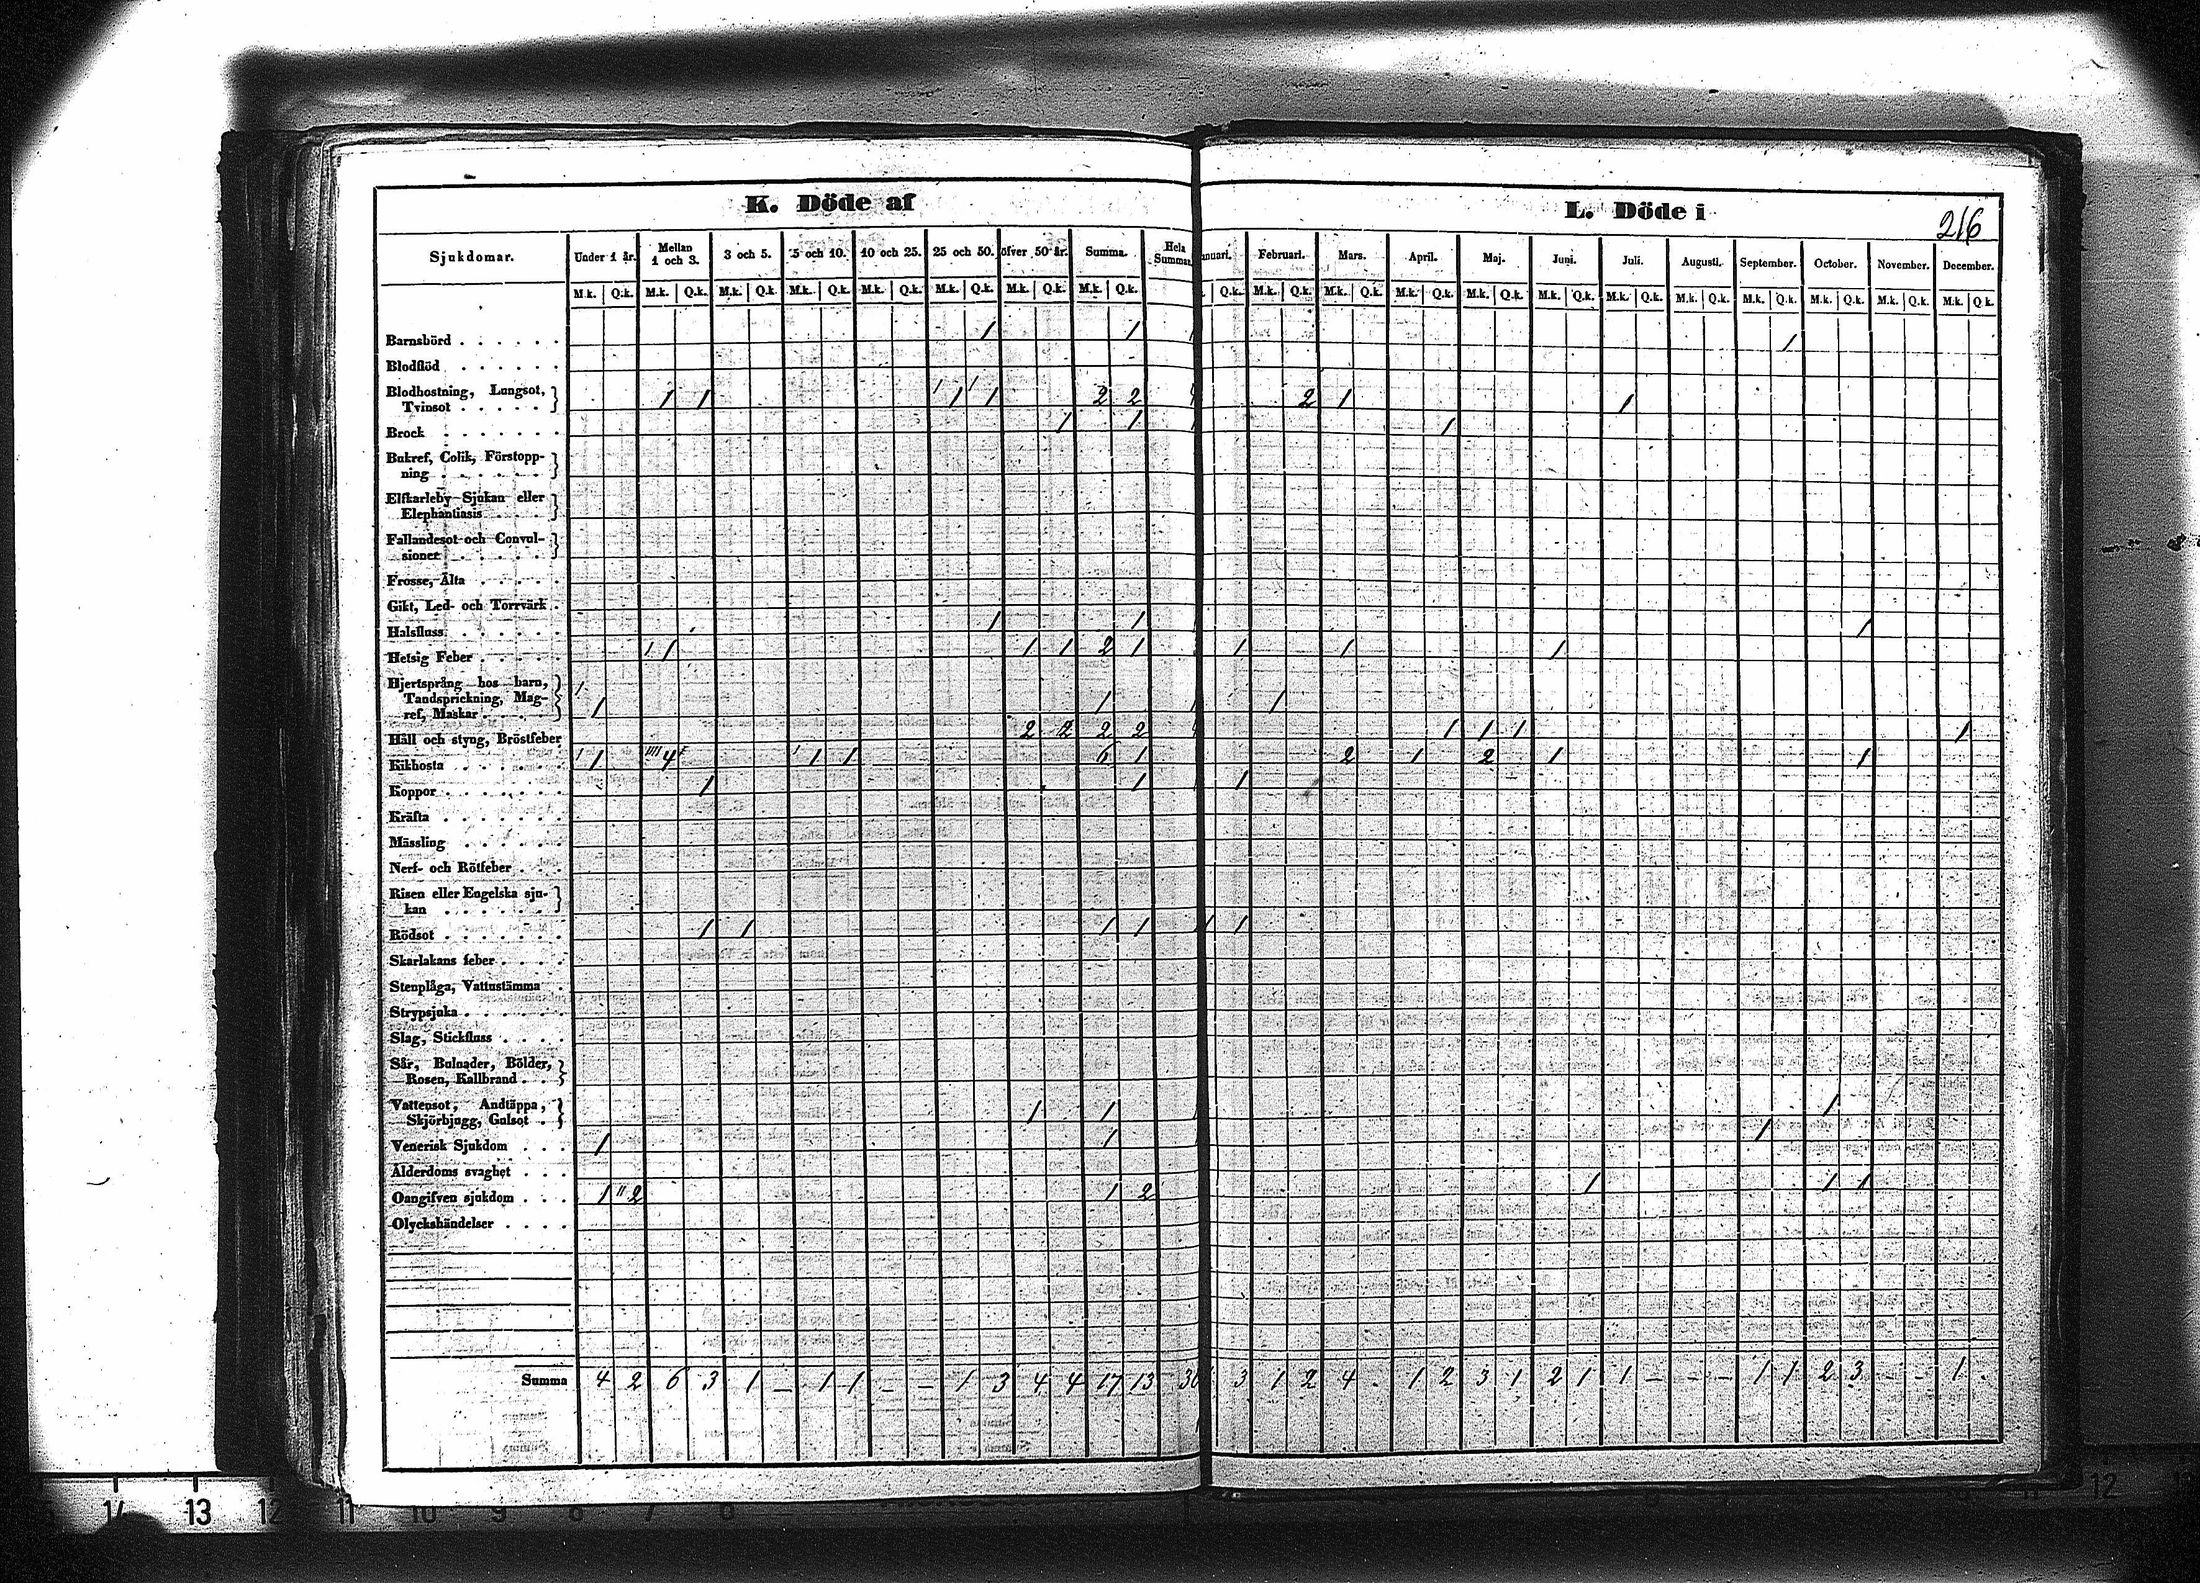 K. Döde af
L. Döde i
216
Sjukdomar. Under 1 år. Mellan 1 och 3. 3 och 5. 5 och 10. 10 och 25. 25 och 50. öfver 50 år. Summa. Hela Summan. nuari. Februari. Mars. April. Maj. Juni. Juli. Augusti. September. October. November. December.
M.k. Q.k. M.k. Q.k. M.k. Q.k. M.k. Q.k. M.k. Q.k. M.k. Q.k. M.k. Q.k. M.k. Q.k. Q.k. M.k. Q.k. M.k. Q.k. M.k. Q.k. M.k. Q.k. M.k. Q.k. M.k. Q.k. M.k. Q.k. M.k. Q.k. M.k. Q.k. M.k. Q.k. M.k. Q.k.
Barnsbörd 1 1 1
Blodflöd
Blodhostning, Lungsot,
Tvinsot 1 1 1 1 2 2 2 1 1
Brock 1 1 1
Bukref, Colik, Förstopp-
ning
Elfkarleby Sjukan eller
Elephantiasis
Fallandesot och Convul-
sioner
Frosse, Älta
Gikt, Led- och Torrvärk
Halsfluss 1 1 1
Hetsig Feber 1 1 1 2 1 1 1 1
Hjertsprång hos barn,
Tandsprickning, Mag-
ref, Maskar 1 1 1
Håll och styng, Bröstfeber 2 2 2 2 1 1 1 1
Kikhosta 1 4 1 1 6 1 2 1 2 1 1
Koppor 1 1 1
Kräfta
Mässling
Nerf- och Rötfeber
Risen eller Engelska sju-
kan
Rödsot 1 1 1 1 1 1
Skarlakans feber
Stenplåga, Vattustämma
Strypsjuka
Slag, Stickfluss
Sår, Bulnader, Bölder,
Rosen, Kallbrand
Vattensot, Andtäppa,
Skjörbjugg, Gulsot 1 1 1
Venerisk Sjukdom 1 1 1
Ålderdoms svaghet
Oangifven sjukdom 1 2 1 2 1 1 1
Olyckshändelser
Summa 4 2 6 3 1 – 1 1 – – 1 3 4 4 17 13 30 3 1 2 4 - 1 2 3 1 2 1 1 – – – 1 1 2 3 - - 1 -
14 13 12 11 10 9 8 7 12